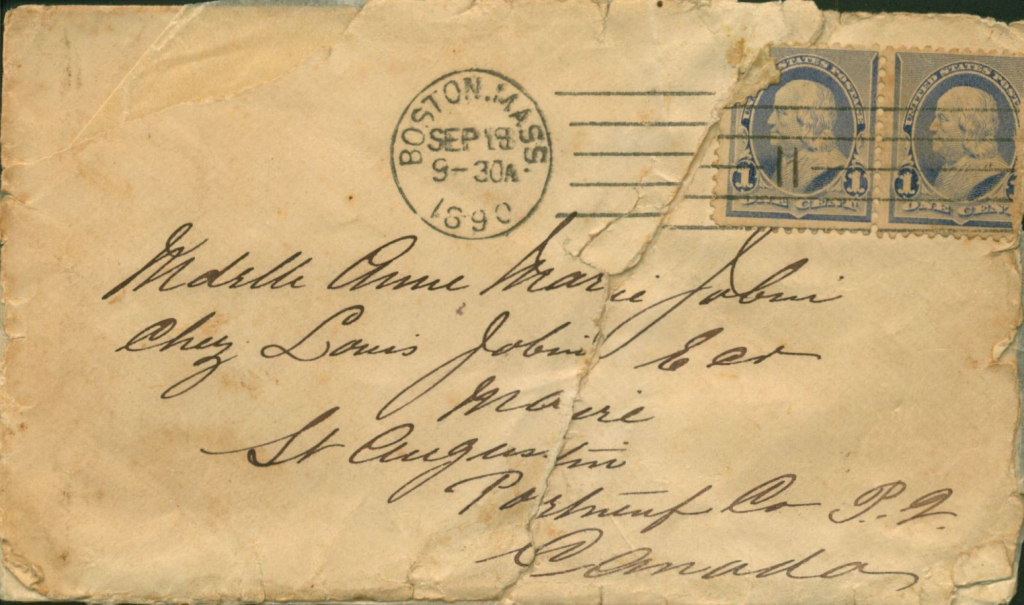 BOSTON.MASS.
SEP 18
9-30A
1890
UNITED STATES POSTAGE
1 1
ONE CENT
11
UNITED STATES POSTAGE
1
ONE CENT
Mdslle Anne Marie Jobin
Chez Louis Jobin Ecr
Maire
St Augustin
Portneuf Co P.Q.
Canada